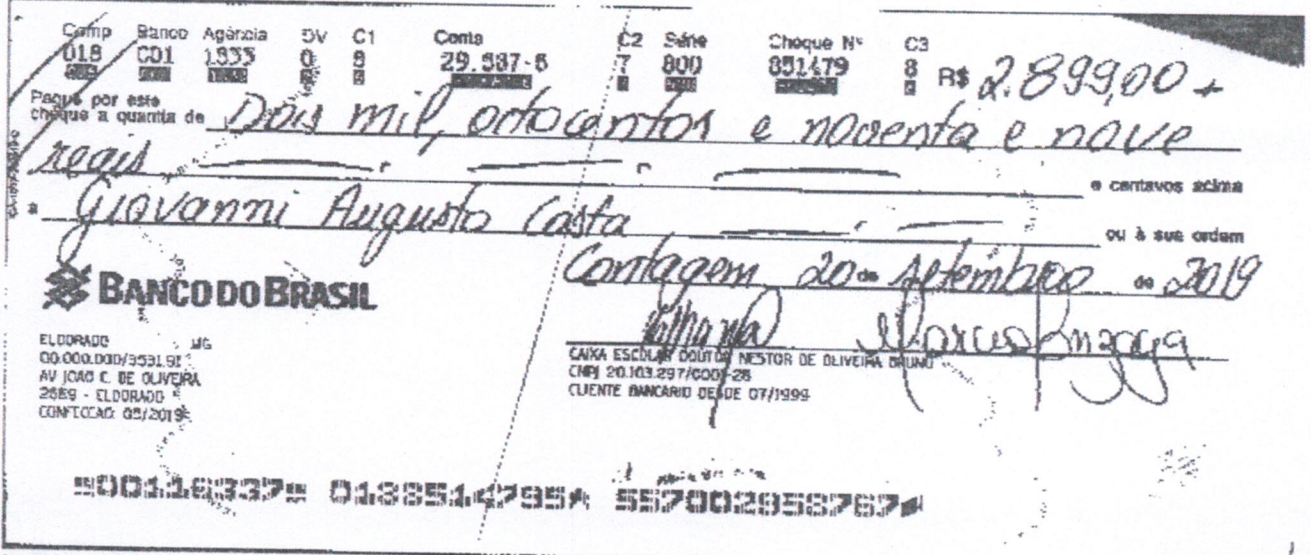 Comp Banco Agência DV C1 Conta C2 Série Cheque Nº C3
018 001 1833 0 8 29.587-6 7 800 851479 8 R$ 2.899,00
Pague por este
cheque a quantia de Dois mil, oitocentos e noventa e nove
reais e centavos acima
a Giovanni Augusto Costa ou à sua ordem
Contagem 20 de setembro de 2019
BANCO DO BRASIL
ELDORADO MG
00.000.000/3531.91
AV JOAO C. DE OLIVEIRA
2689 - ELDORADO
CONFECCAO: 05/2019
CAIXA ESCOLAR DOUTOR NESTOR DE OLIVEIRA BRUNO
CNPJ 20.103.297/0001-28
CLIENTE BANCARIO DESDE 07/1999